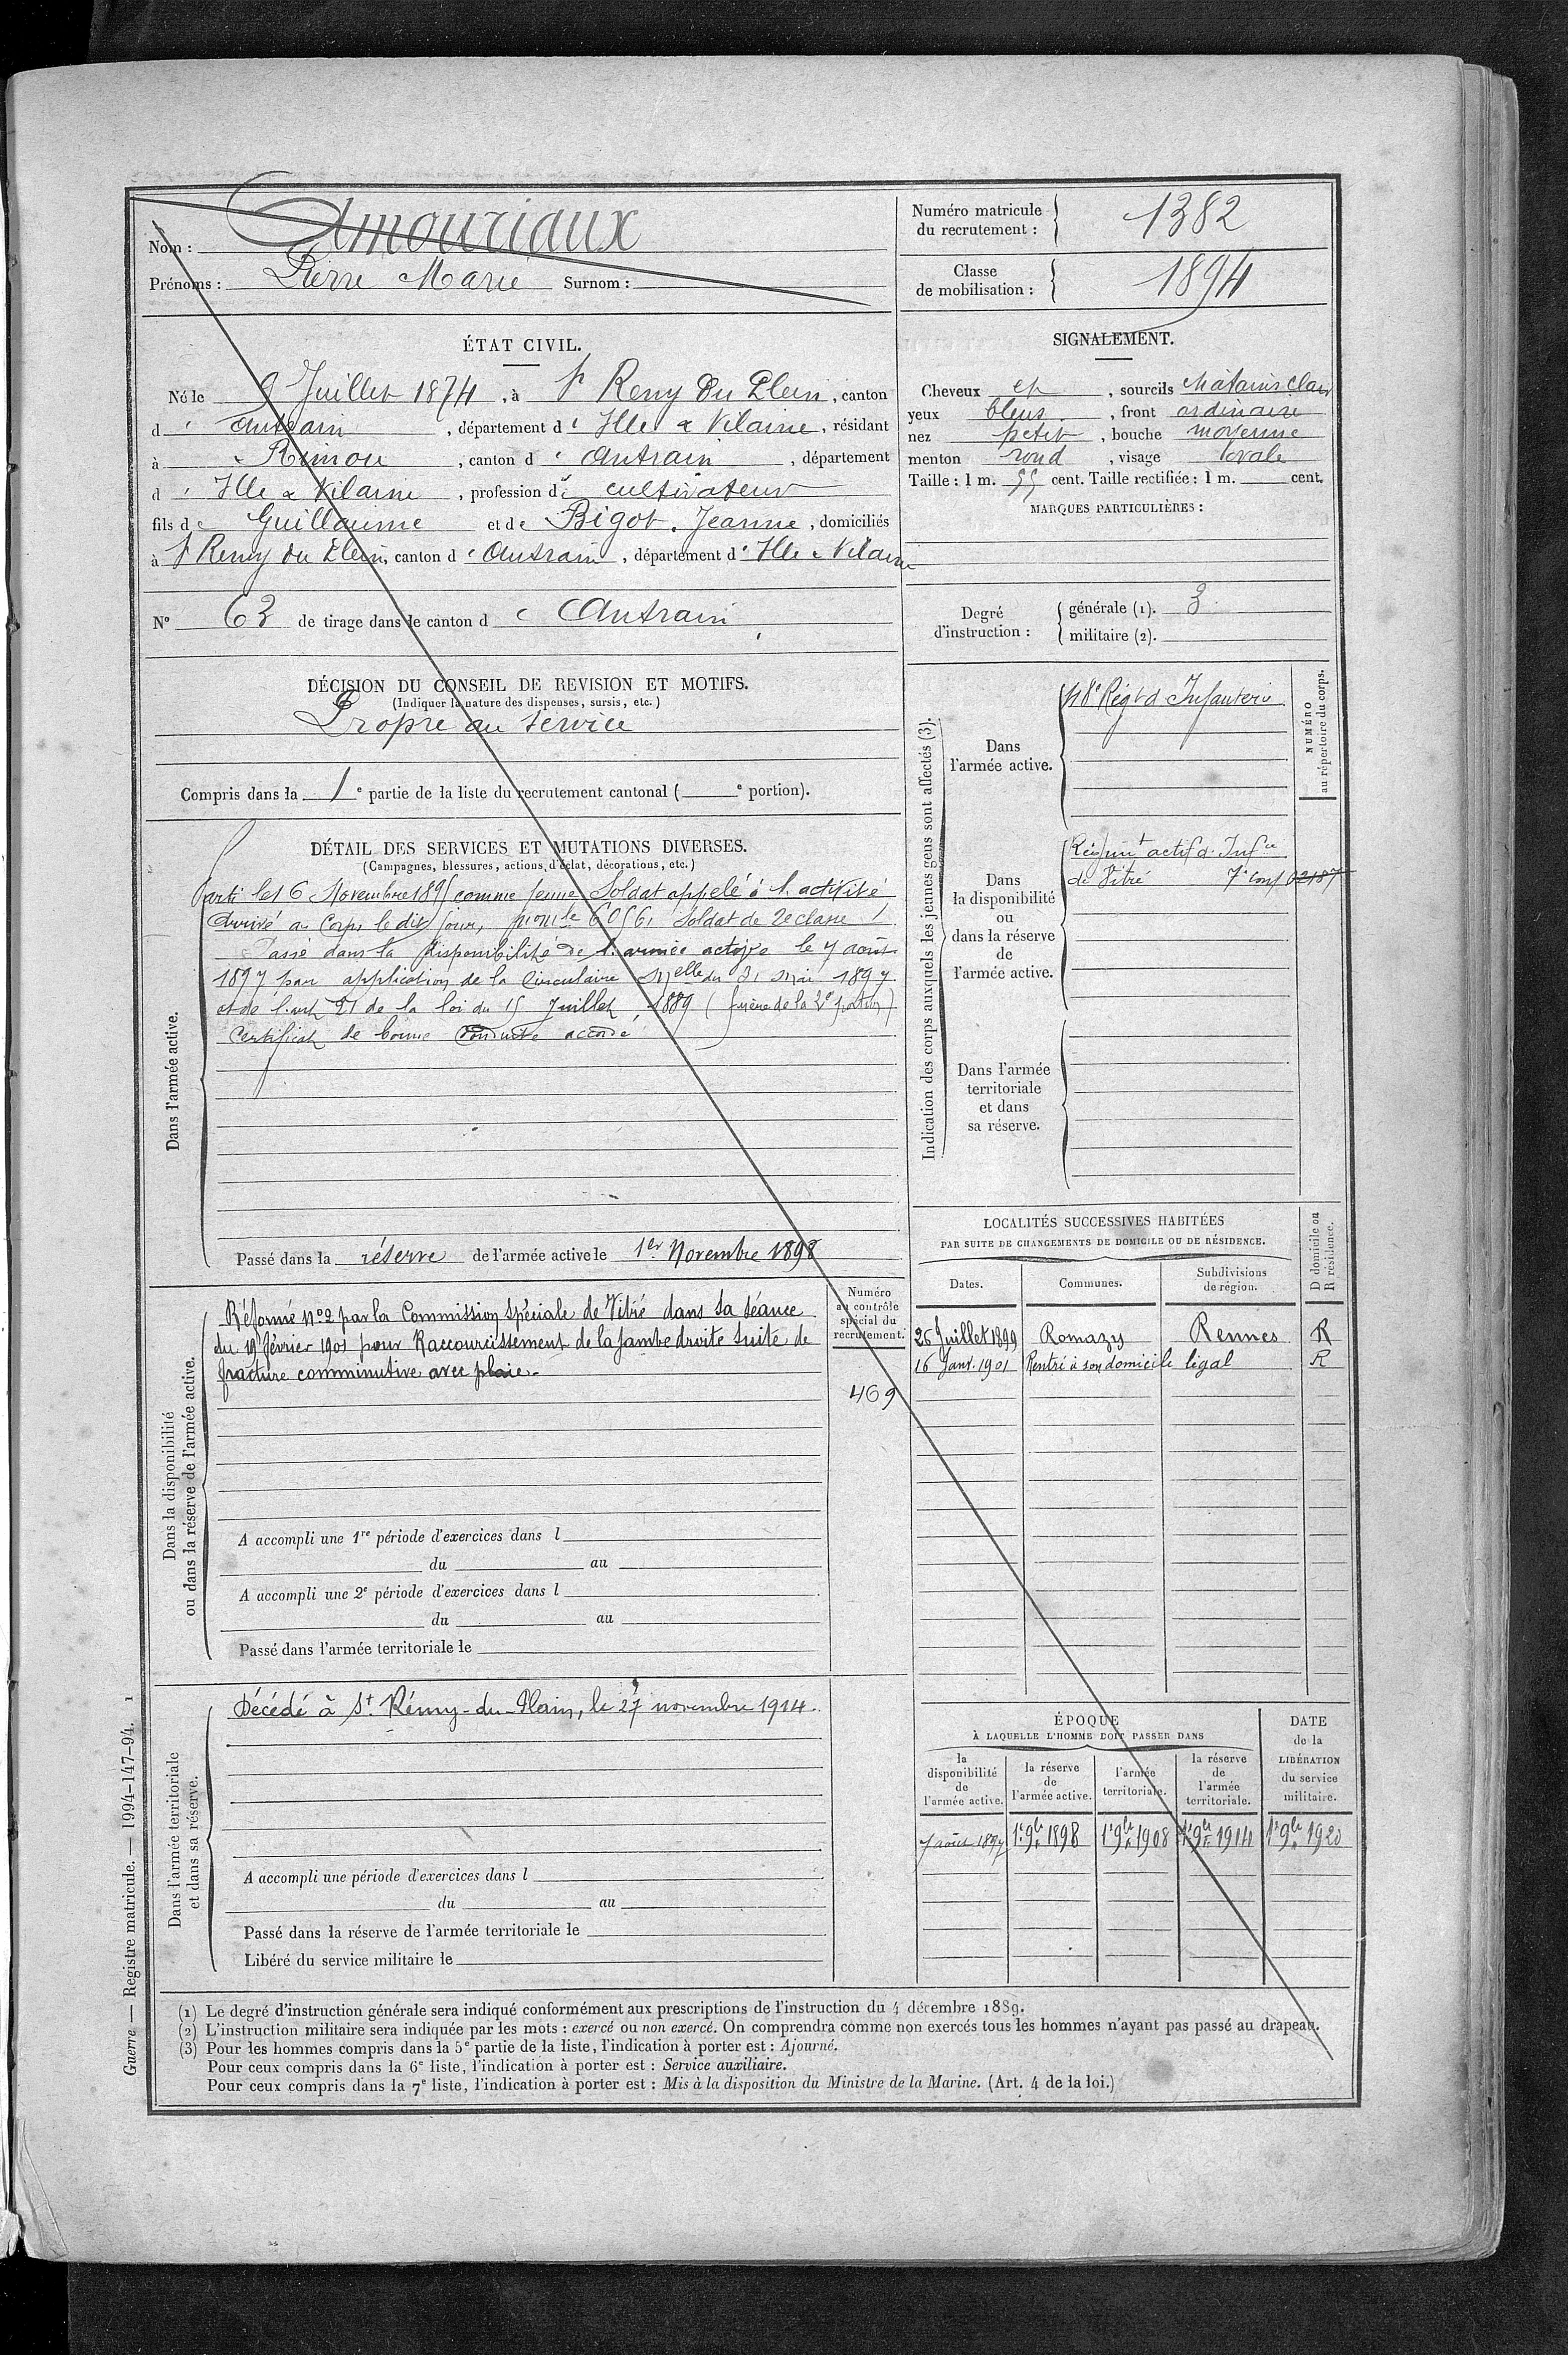 Nom : Amouriaux
Prénoms : Pierre Marie Surnom :
Numéro matricule du recrutement : 1382
Classe de mobilisation : 1894
ÉTAT CIVIL.
Né le 9 Juillet 1874, à St Remy Du Plein, canton
d' Antrain, département d' Ille & Vilaine, résidant
à Rimou, canton d' Antrain, département
d' Ille & Vilaine, profession de cultivateur
fils de Guillaume et de Bigot. Jeanne, domiciliés
à St Remy du Plein, canton d' Antrain, département d' Ille & Vilaine
N° 63 de tirage dans le canton d' Antrain
SIGNALEMENT.
Cheveux et, sourcils chatains clair
yeux bleus, front ordinaire
nez petit, bouche moyenne
menton rond, visage ovale
Taille : 1 m. 55 cent. Taille rectifiée : 1 m. cent.
MARQUES PARTICULIÈRES :
Degré d'instruction :
générale (1). 3
militaire (2).
DÉCISION DU CONSEIL DE REVISION ET MOTIFS.
(Indiquer la nature des dispenses, sursis, etc.)
Propre au service
Compris dans la 1e partie de la liste du recrutement cantonal ( e portion).
DÉTAIL DES SERVICES ET MUTATIONS DIVERSES.
(Campagnes, blessures, actions d'éclat, décorations, etc.)
Dans l'armée active.
Parti le 16 Novembre 1895 comme Jeune Soldat appelé à l'activité
Arrivé au Corps le dit jour, 6056, Soldat de 2e classe
Passé dans la disponibilité de l'armée active le 7 août
1897 par application de la Circulaire Mlle du 31 Mai 1897
et de l'art 21 de la loi du 15 Juillet 1889
Certificat de bonne Conduite accordé
Passé dans la réserve de l'armée active le 1er Novembre 1898
Indication des corps auxquels les jeunes gens sont affectés (3).
NUMÉRO au répertoire du corps.
Dans l'armée active.
Régt d'Infanterie
Dans la disponibilité ou dans la réserve de l'armée active.
Régimt actif d'Infie
de Vitré
Dans l'armée territoriale et dans sa réserve.
Dans la disponibilité ou dans la réserve de l'armée active.
Numéro au contrôle spécial du recrutement.
Réformé N°2 par la Commission spéciale de Vitré dans sa séance
du février 1901 pour Raccourcissement de la jambe droite suite de
fracture comminutive avec plaie.
469
A accompli une 1re période d'exercices dans l
du au
A accompli une 2e période d'exercices dans l
du au
Passé dans l'armée territoriale le
LOCALITÉS SUCCESSIVES HABITÉES
PAR SUITE DE CHANGEMENTS DE DOMICILE OU DE RÉSIDENCE.
Dates. Communes. Subdivisions de région. D domicile ou R résidence.
26 Juillet 1899 Romazy Rennes R
16 Janv. 1901 Rentré à son domicile légal R
Dans l'armée territoriale et dans sa réserve.
Décédé à St. Rémy-du-Plain, le 27 novembre 1914.
A accompli une période d'exercices dans l
du au
Passé dans la réserve de l'armée territoriale le
Libéré du service militaire le
ÉPOQUE
À LAQUELLE L'HOMME DOIT PASSER DANS
la disponibilité de l'armée active.
la réserve de l'armée active.
l'armée territoriale.
la réserve de l'armée territoriale.
DATE de la LIBÉRATION du service militaire.
7 août 1897 1er 9bre 1898 1er 9bre 1908 1er 9bre 1914 1er 9bre 1920
(1) Le degré d'instruction générale sera indiqué conformément aux prescriptions de l'instruction du 4 décembre 1889.
(2) L'instruction militaire sera indiquée par les mots : exercé ou non exercé. On comprendra comme non exercés tous les hommes n'ayant pas passé au drapeau.
(3) Pour les hommes compris dans la 5e partie de la liste, l'indication à porter est : Ajourné.
Pour ceux compris dans la 6e liste, l'indication à porter est : Service auxiliaire.
Pour ceux compris dans la 7e liste, l'indication à porter est : Mis à la disposition du Ministre de la Marine. (Art. 4 de la loi.)
Guerre — Registre matricule. — 1994-147-94. 1